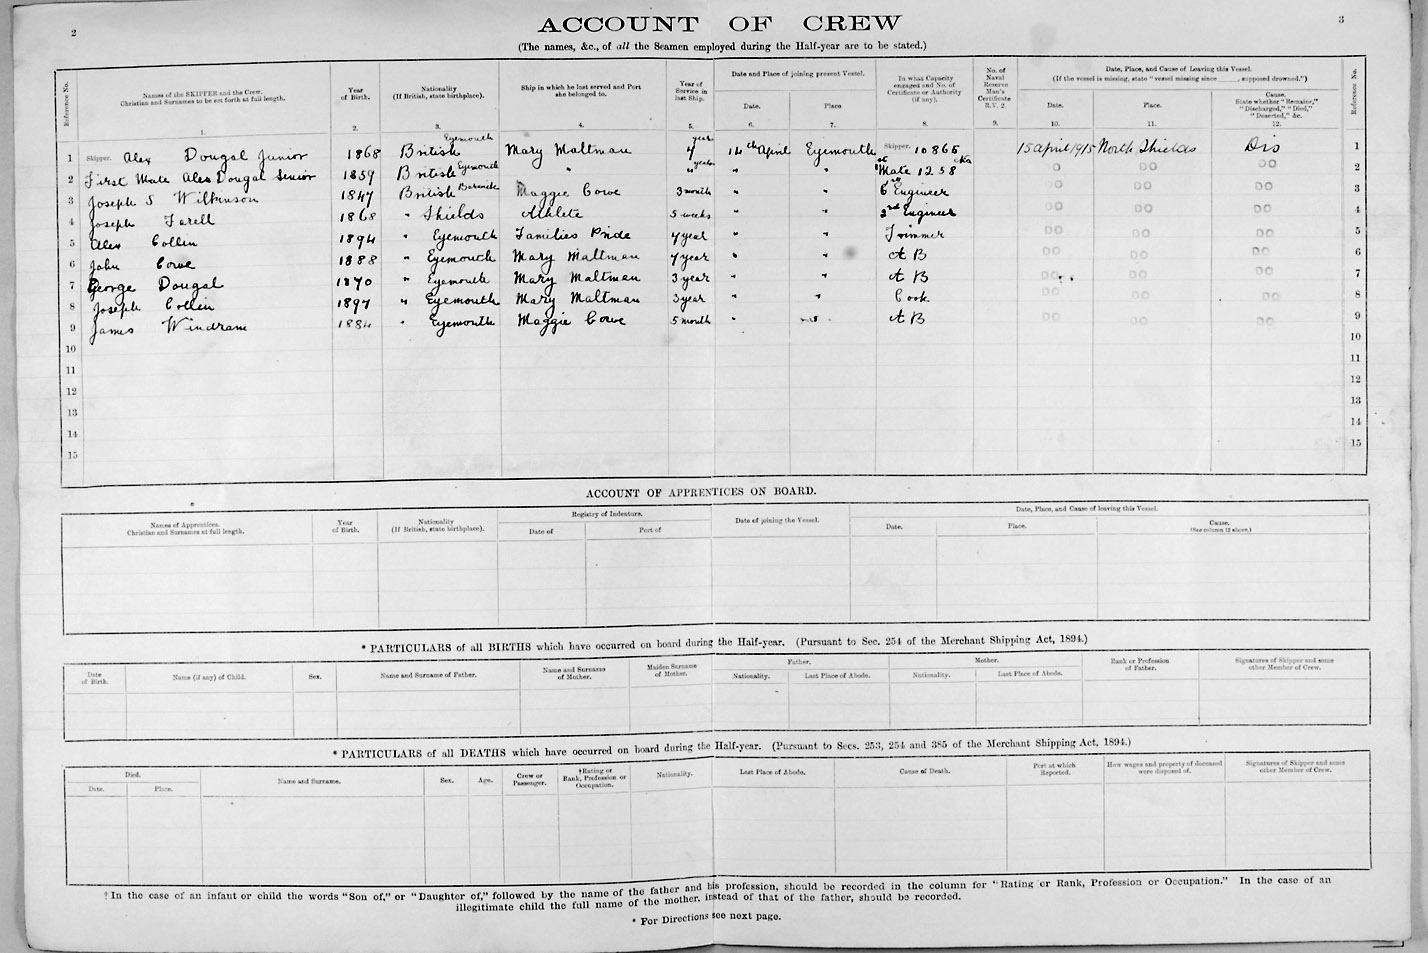 2
ACCOUNT OF CREW
3
(The names, &c., of all the Seamen employed during the Half-year are to be stated.)
Reference No. Names of the SKIPPER and the Crew. Christian and Surnames to be set forth at full length. Year of Birth. Nationality (If British, state birthplace). Ship in which he last served and Port she belonged to. Year of Service in last Ship. Date and Place of joining present Vessel. Date. Place In what Capacity engaged and No. of Certificate or Authority (if any). No. of Naval Reserve Man's Certificate R.V. 2. Date, Place, and Cause of Leaving this Vessel. (If the vessel is missing, state "vessel missing since ____, supposed drowned.") Date. Place. Cause. State whether "Remains," "Discharged," "Died," "Deserted," &c. Reference No.
1. 2. 3. 4. 5. 6. 7. 8. 9. 10. 11. 12.
1 Skipper. Alex Dougal Junior 1868 British Eyemouth Mary Maltman 4 year 14th April Eyemouth Skipper. 10865 15 April 1915 North Shields Dis 1
2 First Mate Alex Dougal Senior 1859 British Eyemouth " " years " " Mate 1258 DO DO 2
3 Joseph S Wilkinson 1847 British Berwick Maggie Cowe 3 month " " Engineer DO DO DO 3
4 Joseph Farell 1868 " Shields Athlete 5 weeks " " 2nd Engineer DO DO DO 4
5 Alex Collin 1894 " Eyemouth Families Pride 4 year " " Trimmer DO DO DO 5
6 John Cowe 1888 " Eyemouth Mary Maltman 4 year " " A B DO DO DO 6
7 George Dougal 1870 " Eyemouth Mary Maltman 3 year " " A B DO DO DO 7
8 Joseph Collin 1897 " Eyemouth Mary Maltman 3 year " " Cook DO DO DO 8
9 James Windram 1884 " Eyemouth Maggie Cowe 5 month " " A B DO DO DO 9
10 10
11 11
12 12
13 13
14 14
15 15
ACCOUNT OF APPRENTICES ON BOARD.
Names of Apprentices. Christian and Surnames at full length. Year of Birth. Nationality (If British, state birthplace). Registry of Indenture. Date of Port of Date of joining the Vessel. Date, Place, and Cause of leaving this Vessel. Date. Place. Cause. (See column 12 above.)
* PARTICULARS of all BIRTHS which have occurred on board during the Half-year. (Pursuant to Sec. 254 of the Merchant Shipping Act, 1894.)
Date of Birth. Name (if any) of Child. Sex. Name and Surname of Father. Name and Surname of Mother. Maiden Surname of Mother. Father. Nationality. Last Place of Abode. Mother. Nationality. Last Place of Abode. Rank or Profession of Father. Signatures of Skipper and some other Member of Crew.
* PARTICULARS of all DEATHS which have occurred on board during the Half-year. (Pursuant to Secs. 253, 254 and 385 of the Merchant Shipping Act, 1894.)
Died. Date. Place. Name and Surname. Sex. Age. Crew or Passenger. †Rating or Rank, Profession or Occupation. Nationality. Last Place of Abode. Cause of Death. Port at which Reported. How wages and property of deceased were disposed of. Signatures of Skipper and some other Member of Crew.
†In the case of an infant or child the words "Son of," or "Daughter of," followed by the name of the father and his profession, should be recorded in the column for "Rating or Rank, Profession or Occupation." In the case of an
illegitimate child the full name of the mother, instead of that of the father, should be recorded.
* For Directions see next page.